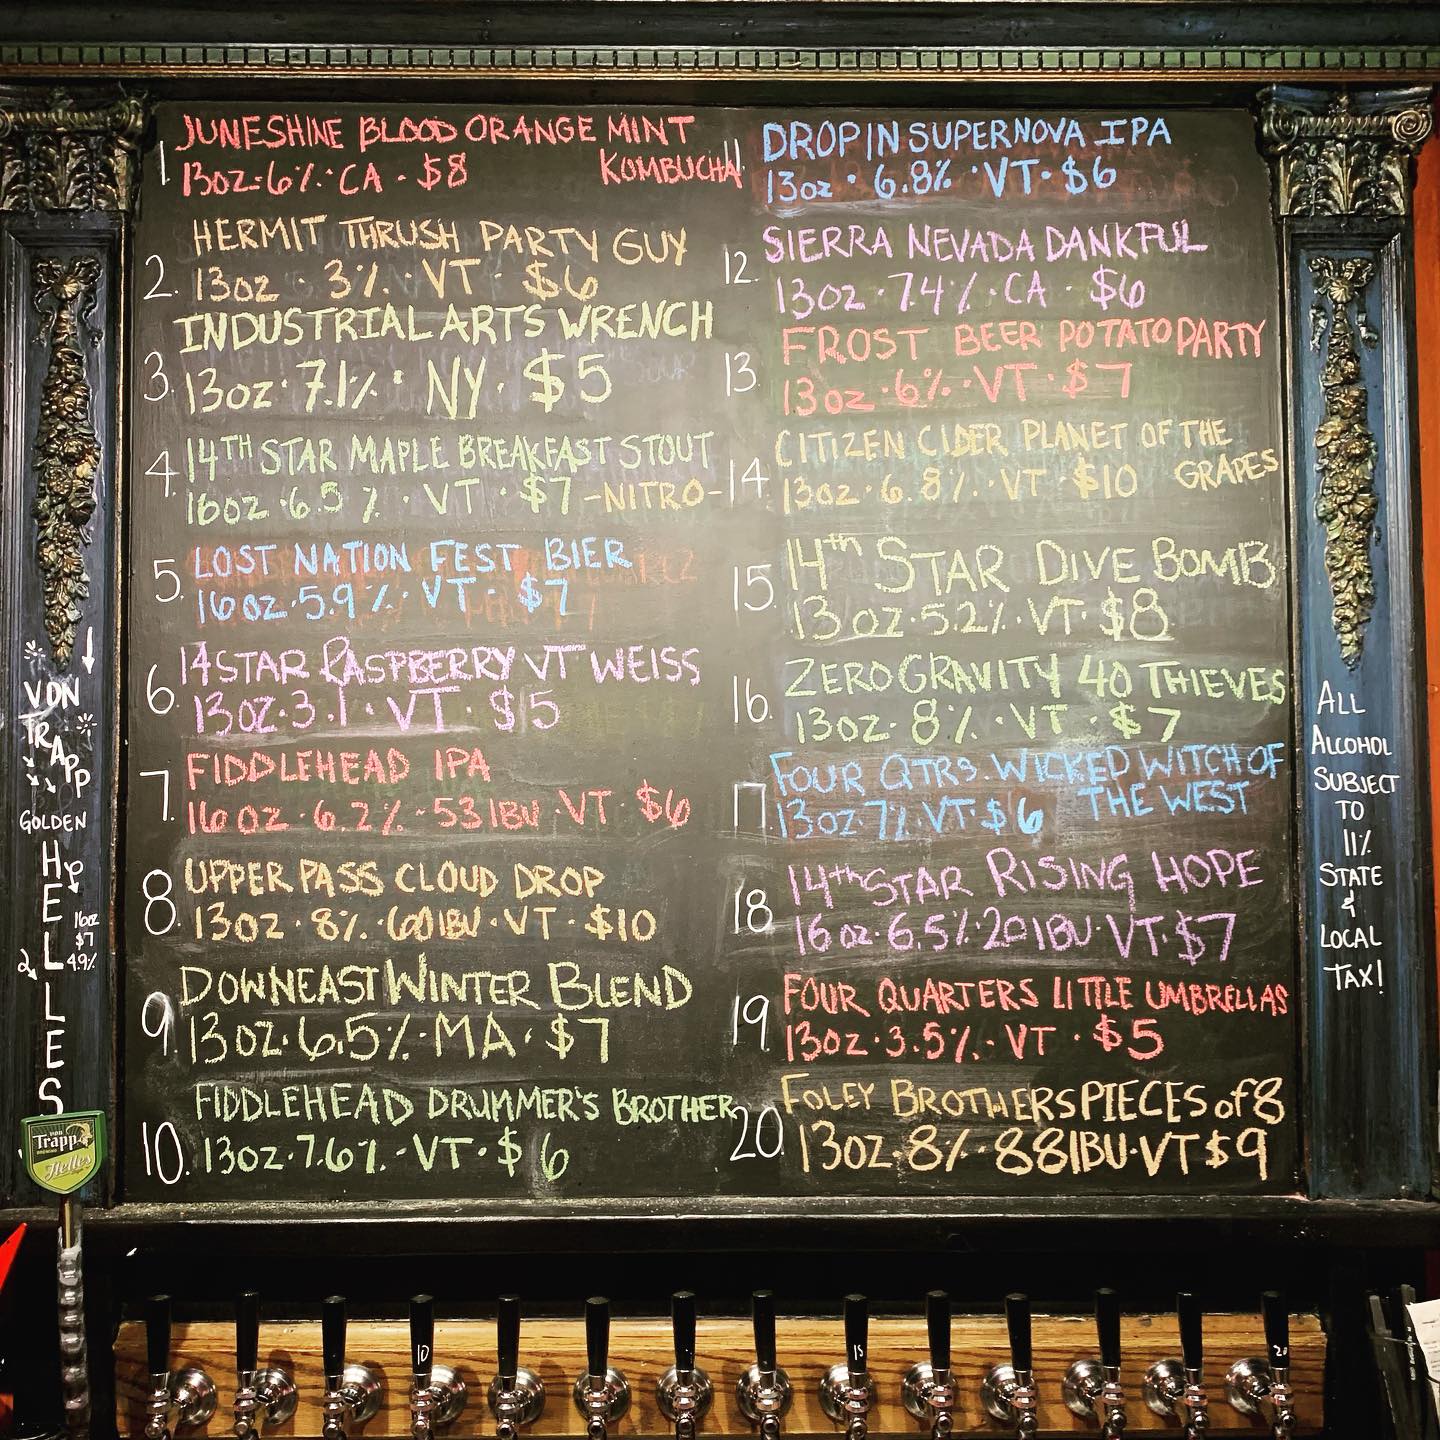 1 JUNESHINE BLOOD ORANGE MINT
KOMBUCHA
13oz · 6% · CA · $8
2. HERMIT THRUSH PARTY GUY
13oz · 3% · VT · $6
3. INDUSTRIAL ARTS WRENCH
13oz · 7.1% · NY · $5
4. 14TH STAR MAPLE BREAKFAST STOUT
16oz · 6.5 % · VT · $7 -NITRO-
5. LOST NATION FEST BIER
16oz · 5.9% · VT · $7
6. 14 STAR RASPBERRY VT WEISS
13oz · 3.1 · VT · $5
7. FIDDLEHEAD IPA
16oz · 6.2% · 53 IBU · VT · $6
8. UPPER PASS CLOUD DROP
13oz · 8% · 60 IBU · VT · $10
9. DOWNEAST WINTER BLEND
13oz · 6.5% · MA · $7
10. FIDDLEHEAD DRUMMER'S BROTHER
13oz · 7.6% · VT · $6
11 DROP IN SUPERNOVA IPA
13oz · 6.8% · VT · $6
12. SIERRA NEVADA DANKFUL
13oz · 7.4% · CA · $6
13. FROST BEER POTATO PARTY
13oz · 6% · VT · $7
14. CITIZEN CIDER PLANET OF THE
GRAPES
13oz · 6.8% · VT · $10
15. 14th STAR DIVE BOMB
13oz · 5.2% · VT · $8
16. ZERO GRAVITY 40 THIEVES
13oz · 8% · VT · $7
17. FOUR QTRS. WICKED WITCH OF
THE WEST
13oz · 7% · VT · $6
18. 14th STAR RISING HOPE
16oz · 6.5% · 20 IBU · VT · $7
19. FOUR QUARTERS LITTLE UMBRELLAS
13oz · 3.5% · VT · $5
20. FOLEY BROTHERS PIECES of 8
13oz · 8% · 88 IBU · VT $9
VON
TRAPP
GOLDEN
HELLES
16oz
$7
4.9%
Trapp
BREWING
Helles
ALL
ALCOHOL
SUBJECT
TO
11%
STATE
&
LOCAL
TAX!
10
15
20